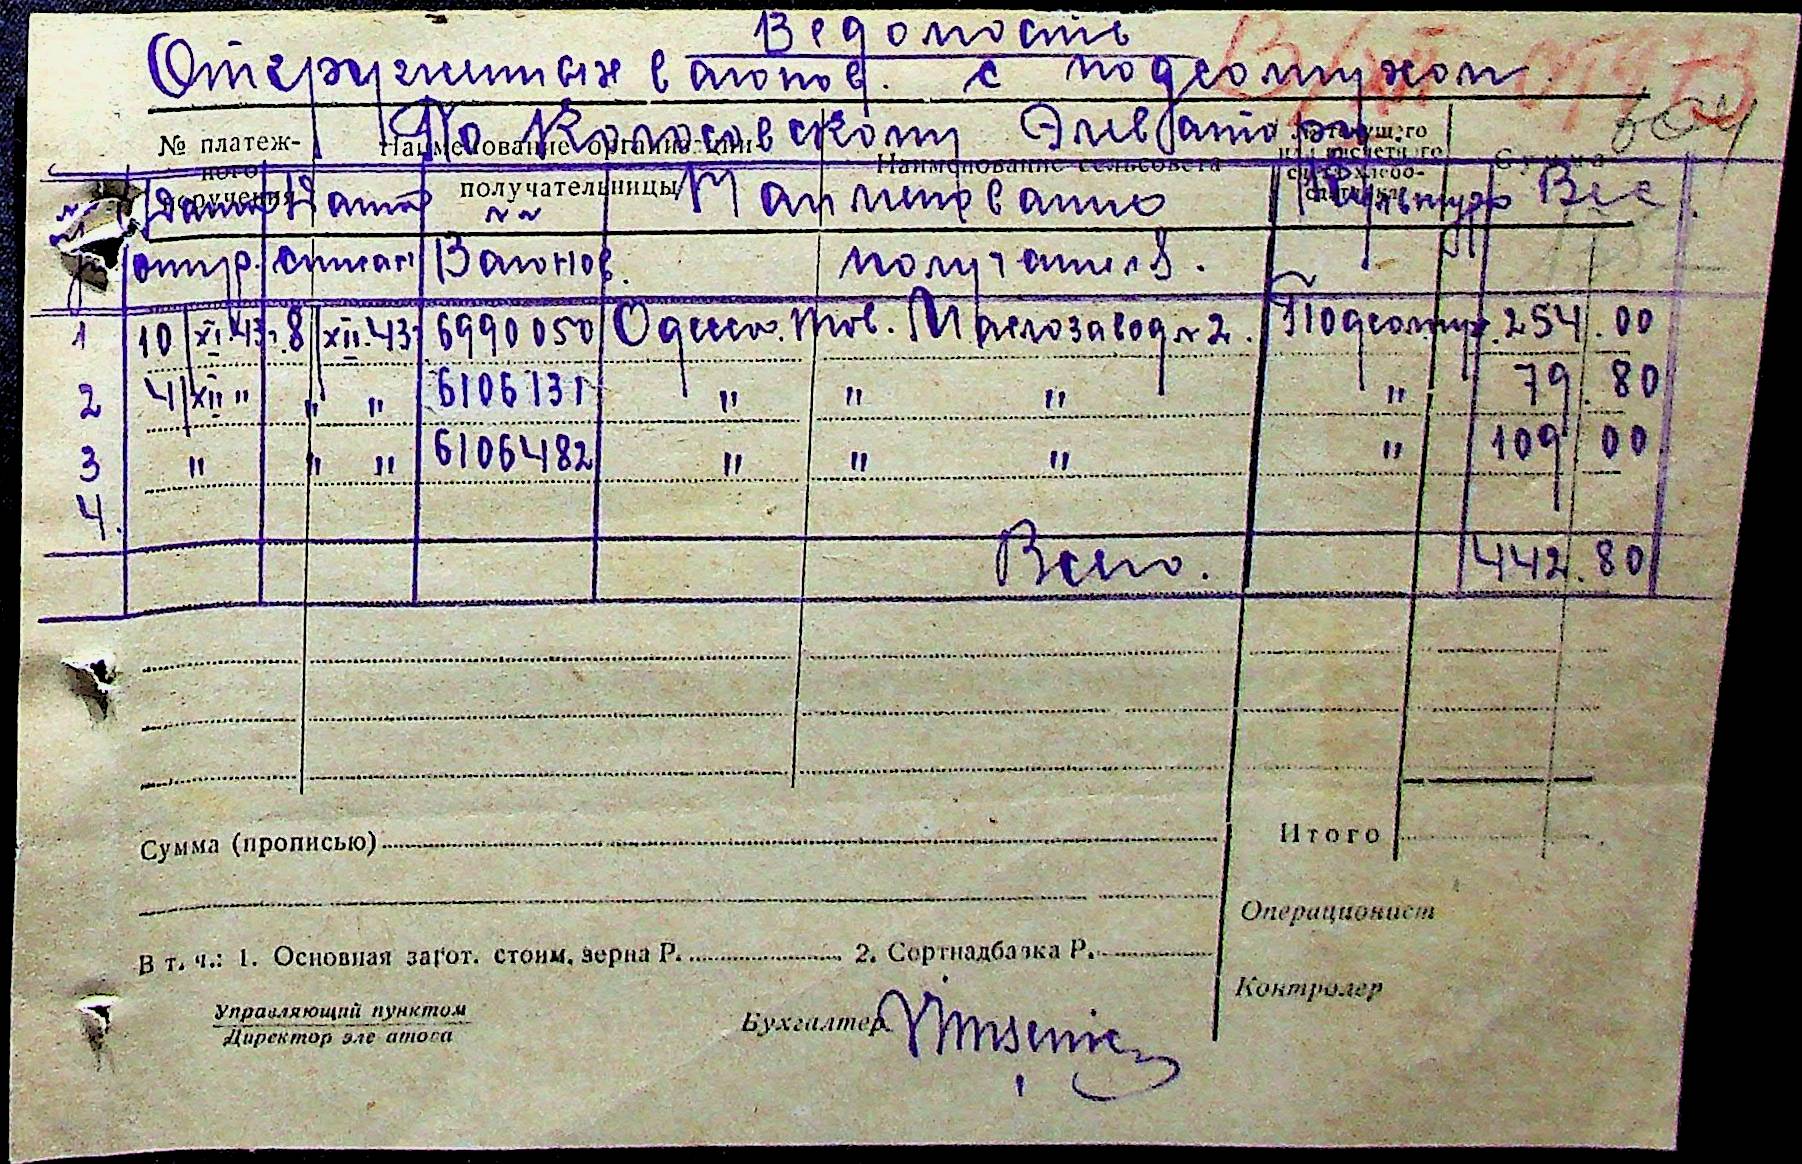 Ведомость
Отгруженных вагонов. с подсолнухом.
По Колосовскому Элеватору
№ платеж-
ного
поручения
Наименование организации-
получательницы
Наименование сельсовета
№ текущего
или расчетного
счета хлебо-
сдатчика
Сумма
№№ Дата Дата №№ Наименование Культура Вес
отгр. списан Вагонов. получателя.
1 10 XI.43. 8 XII.43 6990050 Одесс. тов. Маслозавод №2. Подсолнух. 254.00
2 4 XII " " " 6106131 " " " " 79.80
3 " " " 6106482 " " " " 109 00
4.
Всего. 442.80
Сумма (прописью)
Итого
Операционист
В т. ч.: 1. Основная загот. стоим. зерна Р. 2. Сортнадбавка Р.
Контролер
Управляющий пунктом
Директор элеватора
Бухгалтер